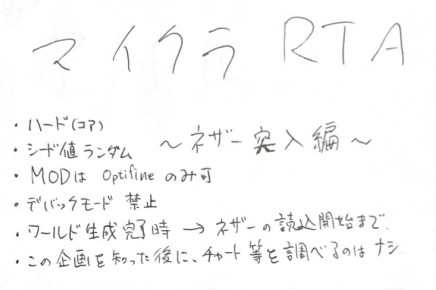 マイクラ RTA
・ハード(コア)
・シード値ランダム 〜ネザー突入編〜
・MODは Optifine のみ可
・デバックモード 禁止
・ワールド生成完了時 → ネザーの読込開始まで.
・この企画を知った後に、チャート等を調べるのは ナシ